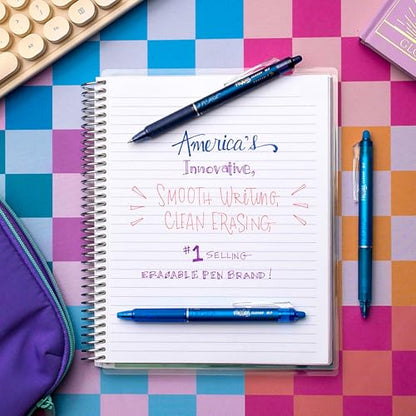 America's
Innovative,
SMOOTH Writing,
CLEAN ERASING
#1 SELLING
ERASABLE PEN BRAND!